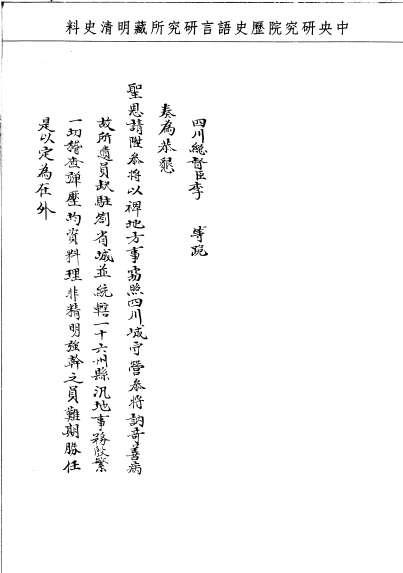 中央研究院歷史語言研究所藏明清史料
四川總督臣李　等跪
奏為恭懇
聖恩請陞參將以裨地方事竊照四川城守營參將訥奇善病
故所遺員缺駐劄省城並統轄一十六州縣汛地事務殷繁
一切稽查彈壓均資料理非精明強幹之員難期勝任
是以定為在外